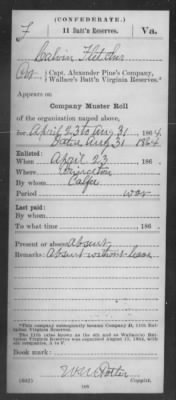 (CONFEDERATE.)
F 11 Batt'n Reserves. Va.
Calvin Fletcher
Capt. Alexander Pine's Company,
Wallace's Batt'n Virginia Reserves.*
Appears on
Company Muster Roll
of the organization named above,
for April 23 to Aug 31, 1864.
Dated Aug 31 1864
Enlisted:
When April 23, 186
Where Princeton
By whom Calfee
Period war
Last paid:
By whom
To what time , 186
Present or absent Absent
Remarks: Absent without leave
*This company subsequently became Company D, 11th Battalion Virginia Reserves.
The 11th (also known as the 4th and as Wallace's) Battalion Virginia Reserves was organized
Book mark:
(642) Copyist.